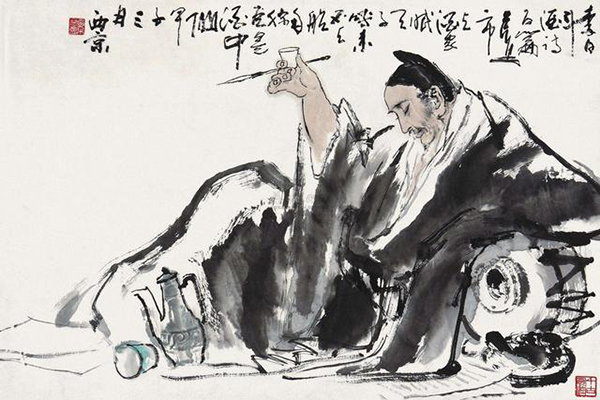 李白
斗酒诗
百篇
长安
市
上酒家
眠
天
子
呼来
不上
船
自称
臣是
酒中
甲
子
三
月
西京